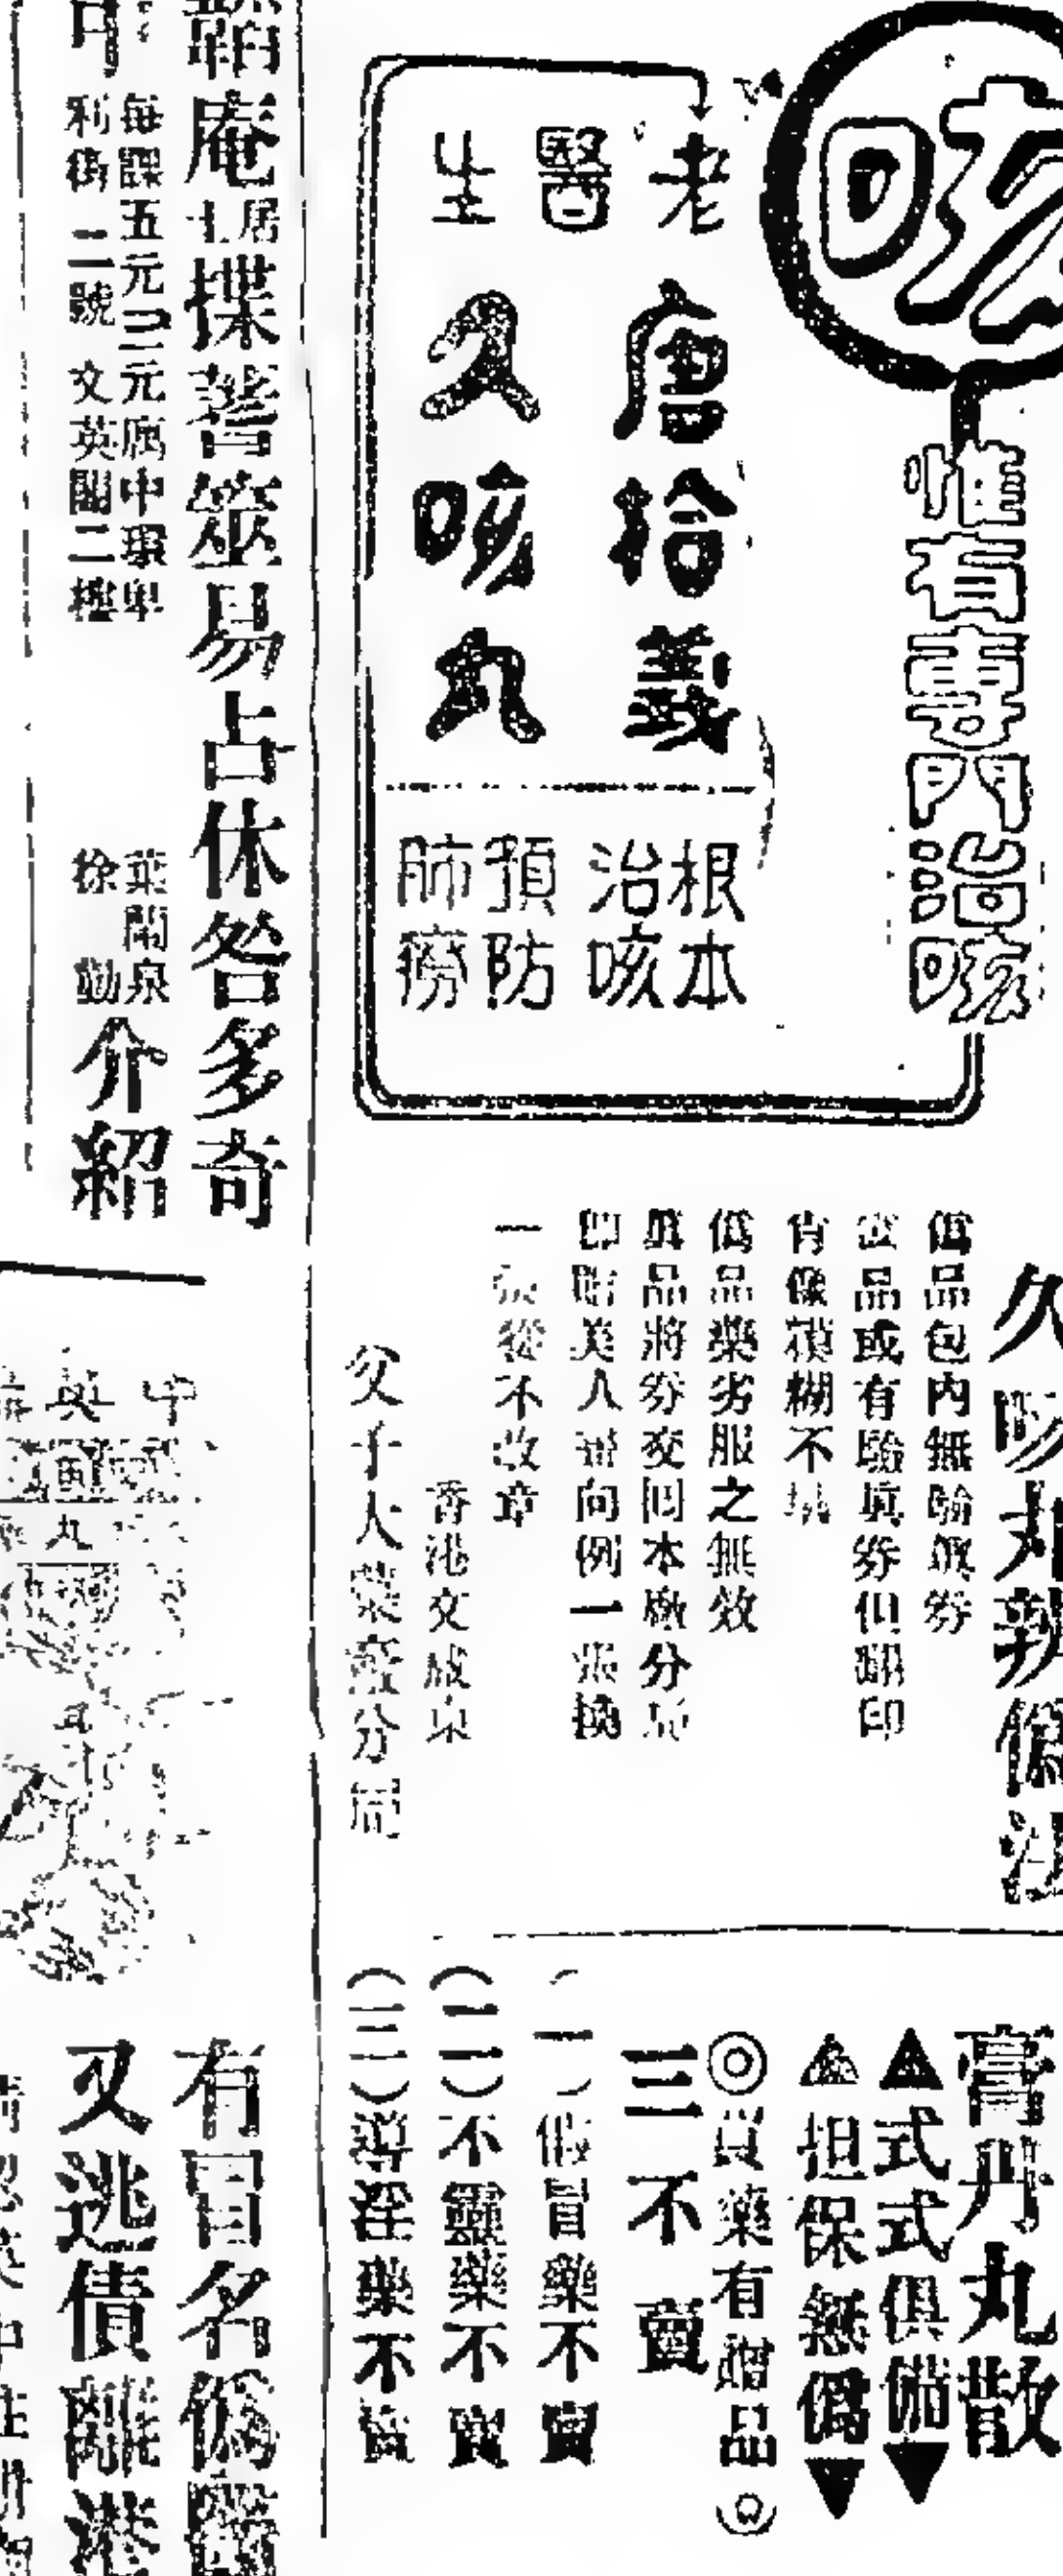 咳
惟有專門治咳
老醫生
唐拾義
久咳丸
根本治咳
預防肺癆
久咳丸辨偽法
偽品包內無驗真券
品或有驗真券但翻印
肖像模糊不
偽品藥劣服之無效
真品將券交回本廠分局
即贈美人畫向例一張換
一張從不改章
香港文咸東
父子大藥廠分局
膏丹丸散
▲式式俱備▼
▲担保無偽▼
◎買藥有贈品◎
三不賣
（一）假冒藥不賣
（二）不靈藥不賣
（三）導淫藥不賣
庵居士揲蓍筮易占休咎多奇
每課五元三元寓中環卑
利街二號文英閣二樓
葉蘭泉
徐 勤
介紹
有冒名偽醫
又逃債離港